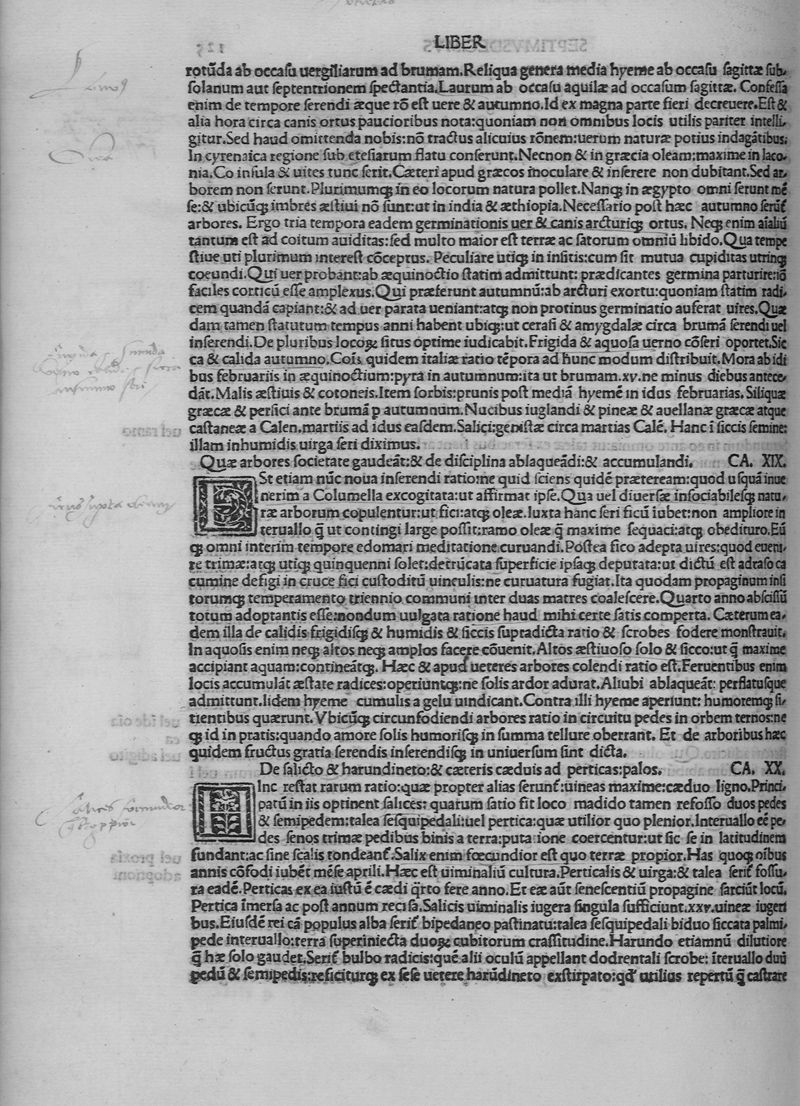 LIBER
rotūda ab occasu uergiliarum ad brumam.Reliqua genera media hyeme ab occasu sagittæ sub-
solanum aut septentrionem spectantia.Laurum ab occasu aquilæ ad occasum sagittæ. Confessa
enim de tempore serendi æque rō est uere & autumno.Id ex magna parte fieri decreuere.Est &
alia hora circa canis ortus paucioribus nota:quoniam non omnibus locis utilis pariter intelli,
gitur.Sed haud omittenda nobis:nō tractus alicuius rōnem:uerum naturæ potius indagātibus:
In cyrenaica regione sub etesiarum flatu conserunt.Necnon & in græcia oleam:maxime in laco,
nia.Co insula & uites tunc serit.Cæteri apud græcos inoculare & inserere non dubitant.Sed ar,
borem non serunt.Plurimumq; in eo locorum natura pollet.Nanq; in ægypto omni serunt mē
se:& ubicūq; imbres æstiui nō sunt:ut in india & æthiopia.Necessario post hæc autumno serūt
arbores. Ergo tria tempora eadem germinationis uer & canis arcturiq; ortus. Neq; enim aīaliū
tantum est ad coitum auiditas:sed multo maior est terræ ac satorum omniū libido.Qua tempe
stiue uti plurimum interest cōceptus. Peculiare utiq; in insitis:cum sit mutua cupiditas utrinq;
coeundi.Qui uer probant:ab æquinoctio statim admittunt: prædicantes germina parturire:iō
faciles corticū esse amplexus.Qui præferunt autumnū:ab arcturi exortu:quoniam statim radi,
cem quandā capiant:& ad uer parata ueniant:atq; non protinus germinatio auferat uires.Quæ
dam tamen statutum tempus anni habent ubiq;:ut cerasi & amygdalæ circa brumā serendi uel
inserendi.De pluribus locoꝝ situs optime iudicabit.Frigida & aquosa uerno cōseri oportet.Sic
ca & calida autumno.Cōis quidem italiæ ratio tēpora ad hunc modum distribuit.Mora ab idi
bus februariis in æquinoctium:pyra in autumnum:ita ut brumam.xv.ne minus diebus antece,
dāt.Malis æstiuis & cotoneis.Item sorbis:prunis post mediā hyemē in idus februarias. Siliquæ
græcæ & persici ante brumā p autumnum.Nucibus iuglandi & pineæ & auellanæ græcæ atque
castaneæ a Calen.martiis ad idus easdem.Salici:genistæ circa martias Calē. Hanc ī siccis semine:
illam inhumidis uirga seri diximus.
Quæ arbores societate gaudeāt:& de disciplina ablaqueādi:& accumulandi. CA. XIX.
ESt etiam nūc noua inserendi ratio:ne quid sciens quidē præteream:quod usquā inue
nerim a Columella excogitata:ut affirmat ipse.Qua uel diuersæ insociabilesq; natu,
ræ arborum copulentur:ut fici:atq; oleæ.Iuxta hanc seri ficū iubet:non ampliore in
teruallo q̄ ut contingi large possit:ramo oleæ q̄ maxime sequaci:atq; obedituro.Eū
q; omni interim tempore edomari meditatione curuandi.Postea fico adepta uires:quod eueni,
re trimæ:atq; utiq; quinquenni solet:detrūcata superficie ipsaq; deputata:ut dictū est adraso ca
cumine defigi in cruce fici custoditū uinculis:ne curuatura fugiat.Ita quodam propaginum insi
torumq; temperamento triennio communi inter duas matres coalescere.Quarto anno abscissū
totum adoptantis esse:nondum uulgata ratione haud mihi certe satis comperta. Cæterum ea,
dem illa de calidis frigidisq; & humidis & siccis supradicta ratio & scrobes fodere monstrauit.
In aquosis enim neq; altos neq; amplos facere cōuenit.Altos æstiuoso solo & sicco:ut q̄ maxime
accipiant aquam:contineātq;. Hæc & apud ueteres arbores colendi ratio est.Feruentibus enim
locis accumulāt æstate radices:operiuntq;:ne solis ardor adurat.Aliubi ablaqueāt: perflatusque
admittunt.Iidem hyeme cumulis a gelu uindicant.Contra illi hyeme aperiunt: humoremq; si,
tientibus quærunt.Vbicūq; circunfodiendi arbores ratio in circuitu pedes in orbem ternos:ne
q; id in pratis:quando amore solis humorisq; in summa tellure oberrant. Et de arboribus hæc
quidem fructus gratia serendis inserendisq; in uniuersum sint dicta.
De salicto & harundineto:& cæteris cæduis ad perticas:palos. CA. XX.
HInc restat rarum ratio:quæ propter alias serunt̄:uineas maxime:cæduo ligno.Princi,
patū in iis optinent salices: quarum satio fit loco madido tamen refosso duos pedes
& semipedem:talea sesquipedali:uel pertica:quæ utilior quo plenior.Interuallo eē pe,
des senos trimæ pedibus binis a terra:putatione coercentur:ut sic se in latitudinem
fundant:ac sine scalis tondeant̄.Salix enim fœcundior est quo terræ propior.Has quoq; oībus
annis cōfodi iubēt mēse aprili.Hæc est uiminaliū cultura.Perticalis & uirga:& talea serit̄ fossu,
ra eadē.Perticas ex ea iustū ē cædi q̄rto fere anno.Et eæ aūt senescentiū propagine sarciūt locū.
Pertica īmersa ac post annum recisa.Salicis uiminalis iugera singula sufficiunt.xxv.uineæ iugeri
bus.Eiusdē rei cā populus alba serit̄ bipedaneo pastinatu:talea sesquipedali biduo siccata palmi,
pede interuallo:terra superiniecta duoꝝ cubitorum crassitudine.Harundo etiamnū dilutiore
q̄ hæ solo gaudet.Serit̄ bulbo radicis:quē alii oculū appellant dodrentali scrobe: īteruallo duū
pedū & semipedis:reficiturq; ex sese uetere harūdineto exstirpato:qd̄ utilius repertū q̄ castrare